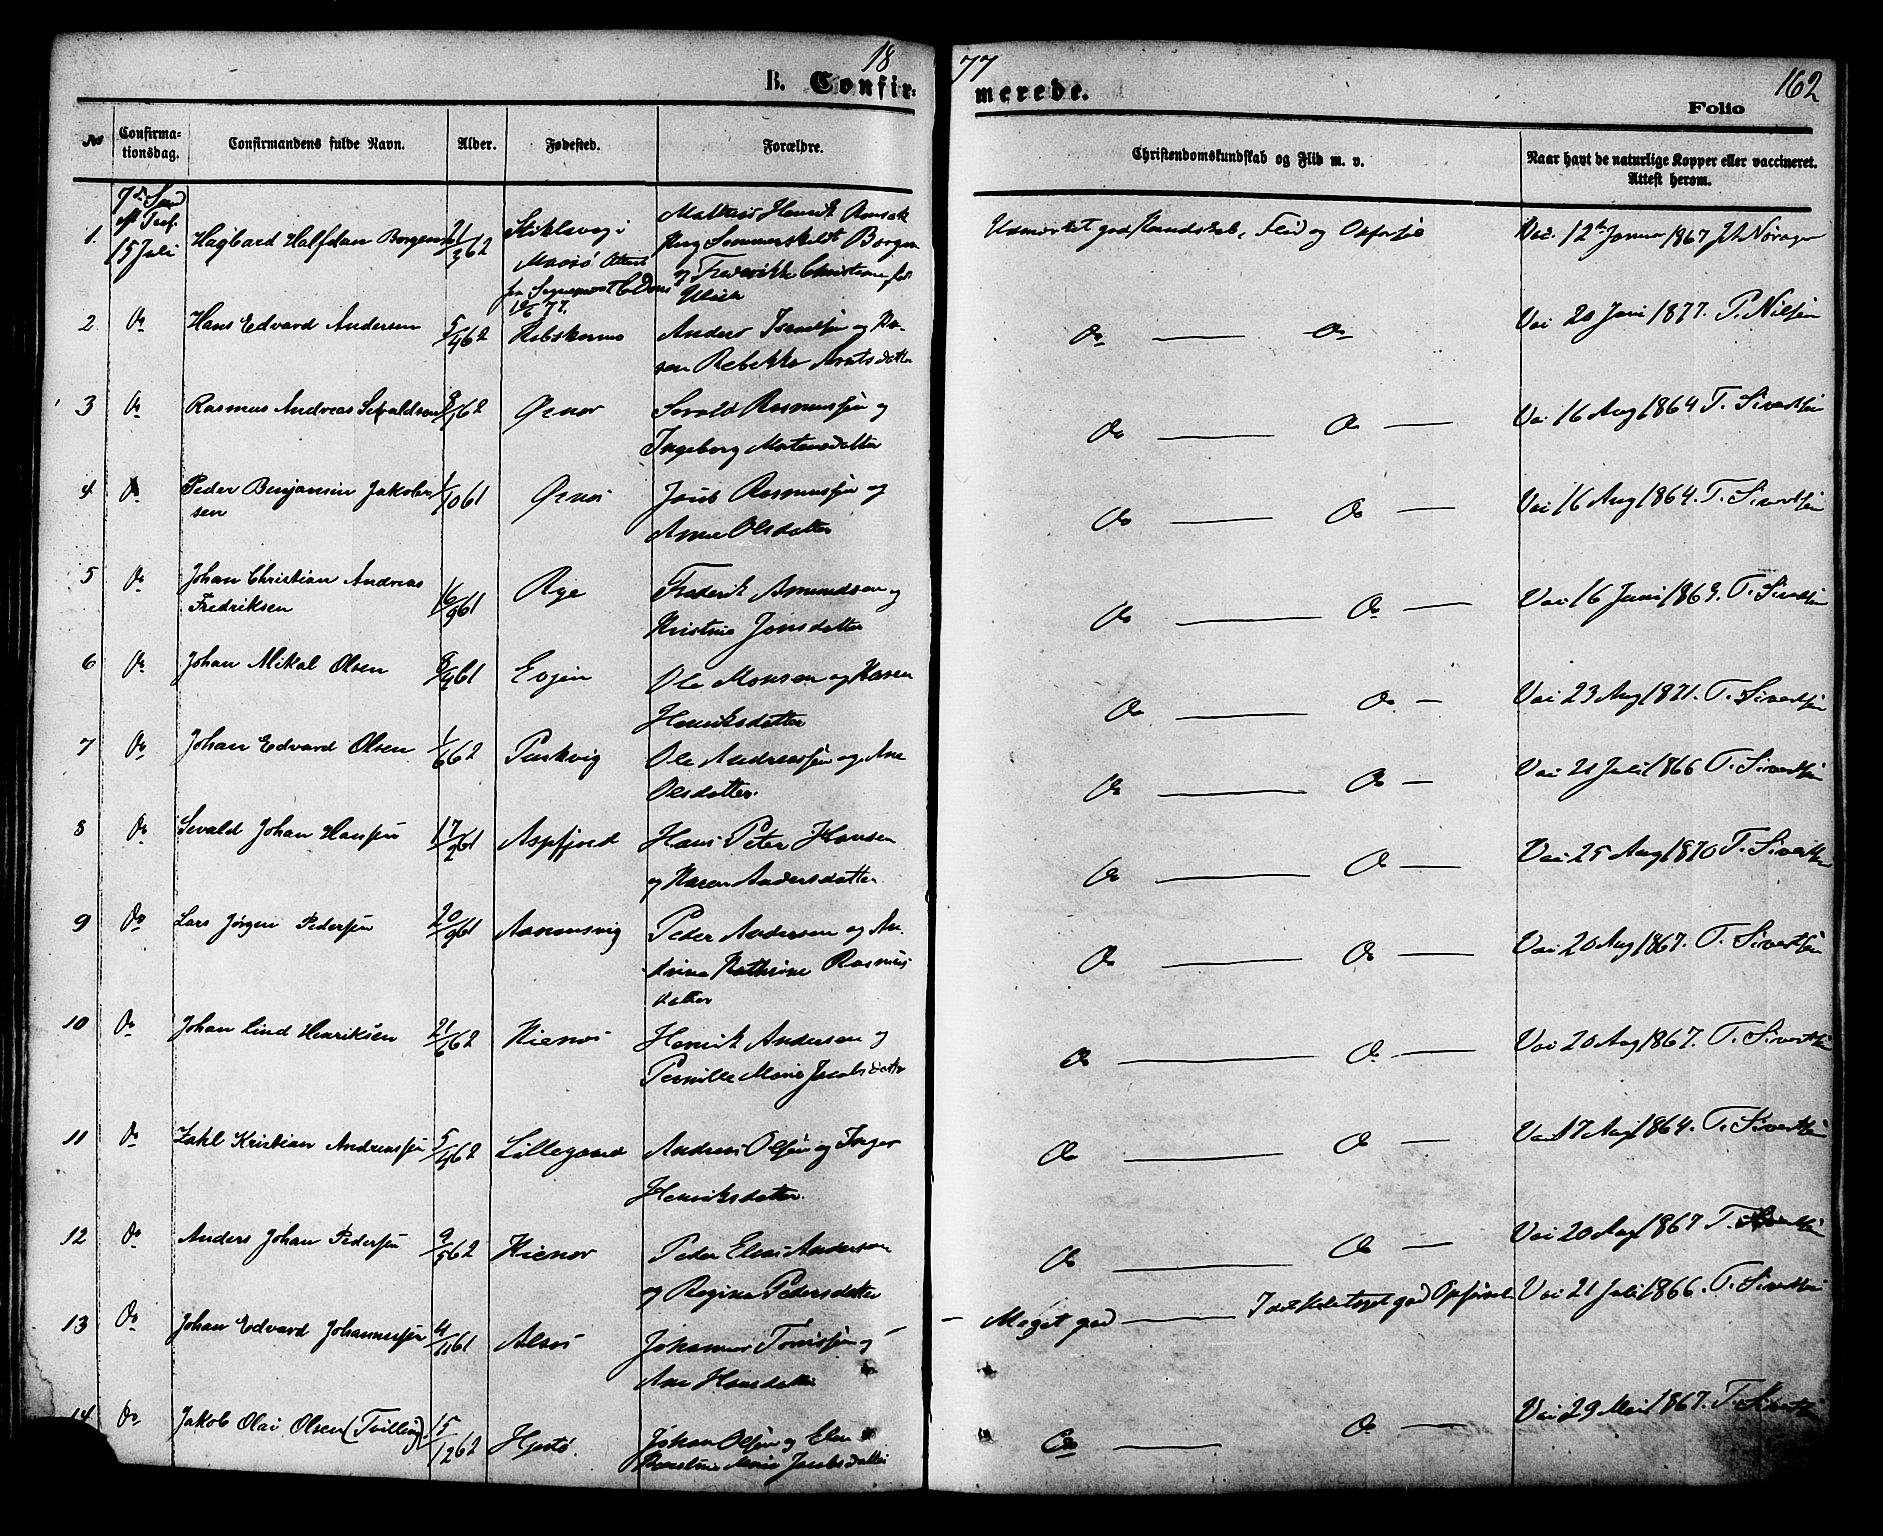 18 77
162
B. Confir-
merede.
Folio
No
Confirma-
tionsdag.
Confirmandens fulde Navn.
Alder.
Fødested.
Forældre.
Christendomskundskab og Flid m. v.
Naar havt de naturlige Kopper eller vaccineret.
Attest herom.
1.
15 Juli
Hagbard Halfdan Borgen
21/3 62
Henrik
Sommerschildt Borgen
og Frederikke Christiane
Kundskab, Flid og
Vac. 12te 1867
2
Do
Hans Edvard Andersen
5/4 62
Anders og
Rebekka
Do — Do
Vac 20 Juni 1877. P. Nilsen
3
Do
Rasmus Andreas Sevaldsen
62
Sevald Rasmussen og
Ingeborg
Do — Do —
Vac 16 Aug 1864 T. Sivertsen
4
Do
Peder Benjamin Jakob-
sen
1/10 61
Jacob Rasmussen og
Anne Olsdatter
Do — Do —
Vac 16 Aug 1864. T. Sivertsen
5
Do
Johan Christian Andreas
Fredriksen
16/9 61
Rye
Frederik Amundsen og
Kristine Jonsdatter
Do — Do —
Vac 16 Juni 1869. T. Sivertsen
6
Do
Johan Mikal Olsen
61
Evjen
Ole Monsen og Karen
Henriksdatter
Do — Do —
Vac 23 Aug 1871. T. Sivertsen
7
Do
Johan Edvard Olsen
1/6 62
Ole Andreassen og Ane
Olsdatter.
Do — Do —
Vac 21 Juli 1866 T. Sivertsen
8
Do
Sevald Johan Hansen
61
Aspfjord
Hans Peter Hansen
og Karen Andersdatter
Do — Do —
Vac 25 Aug 1870 T. Sivertsen
9
Do
Lars Jørgen Pedersen
20/9 61
Peder Andersen og
Kathrine Rasmus-
datter
Do — Do —
Vac 20 Aug 1867. T. Sivertsen
10
Do
Johan Lind Henriksen
21/6 62
Henrik Andersen og
Pernille Marie Jacobsdatter
Do — Do —
Vac 20 Aug 1867. T. Sivertsen
11
Do
Zahl Kristian Andreassen
5/4 62
Lillegaard
Andreas Olsen og Inger
Henriksdatter.
Do — Do —
Vac 17 Aug 1864. T. Sivertsen
12
Do
Anders Johan Pedersen
9/5 62
Kienor
Peder Elias Andersen
og Regina Pedersdatter
Do — Do —
Vac 20 Aug 1867 T. Sivertsen
13
Do
Johan Edvard Johannessen
4/11 61
Johannes Tomissen og
Ane Hansdatter
Meget god — god Opførsel
Vac 21 Juli 1866. T. Sivertsen
14
Do
Jakob Olai Olsen (Tvilling)
15/12 62
Hjertø
Johan Olsen og Elen
Marie Jacobsdatter
Do — Do —
Vac 29 Mai 1867. T. Sivertsen